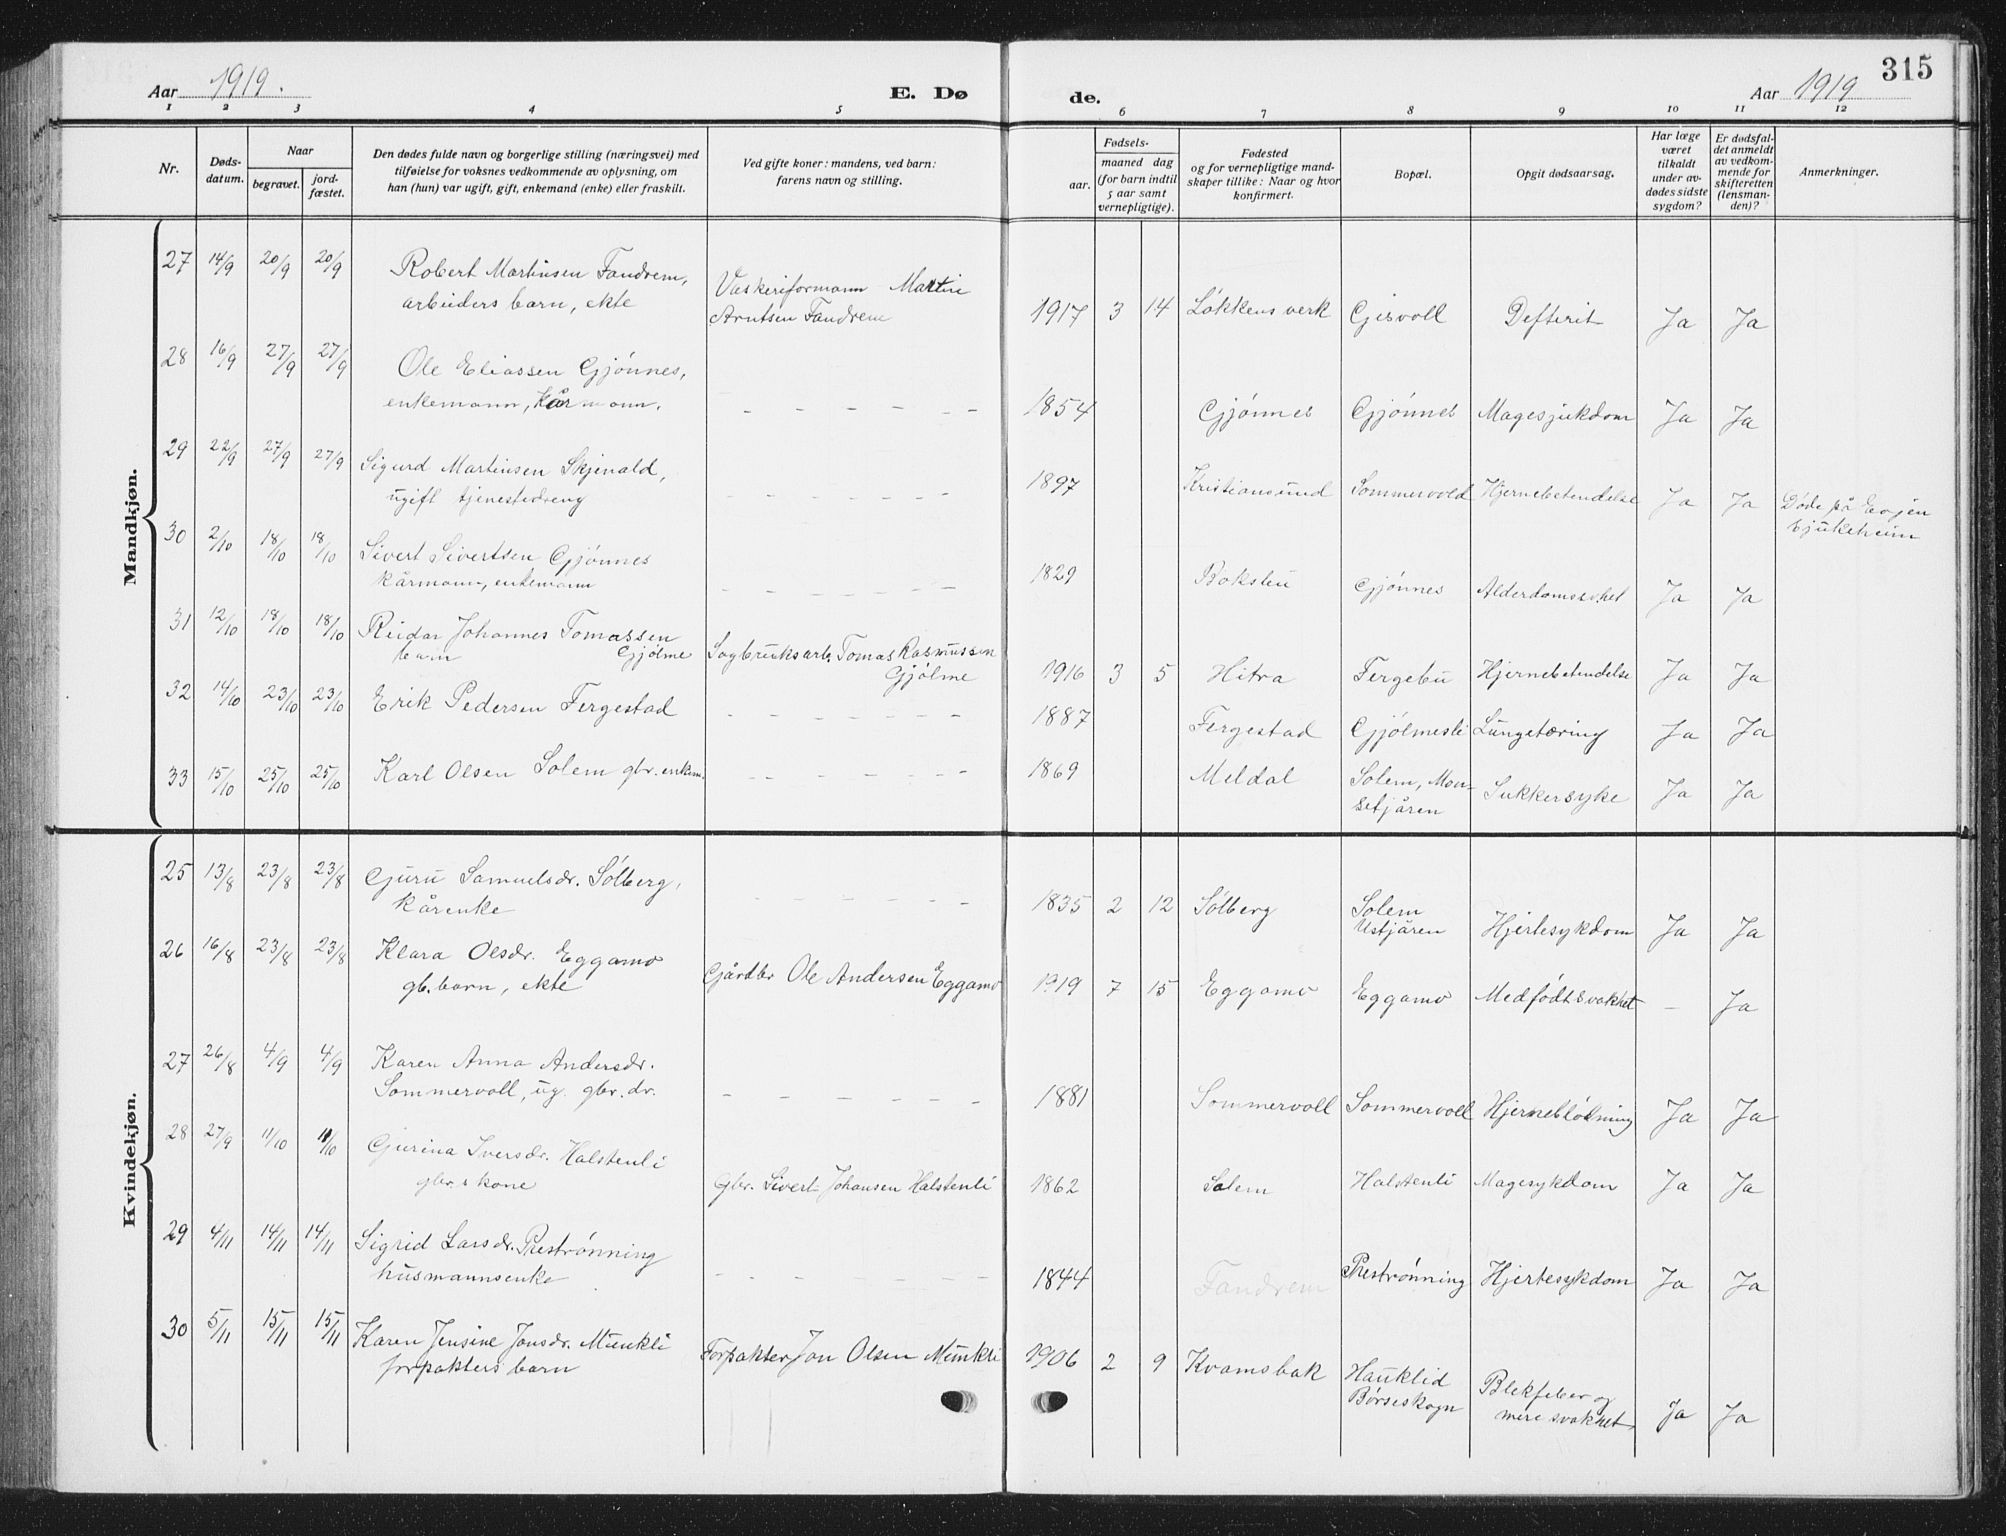 315
Aar 1919. E. Døde. Aar 1919
1 2 3 4 5 6 7 8 9 10 11 12
Nr.
Døds-
datum.
Naar
begravet.
jord-
fæstet.
Den dødes fulde navn og borgerlige stilling (næringsvei) med
tilføielse for voksnes vedkommende av oplysning, om
han (hun) var ugift, gift, enkemand (enke) eller fraskilt.
Ved gifte koner: mandens, ved barn:
farens navn og stilling.
Fødsels-
aar.
maaned dag
(for barn indtil
5 aar samt
vernepligtige).
Fødested
og for vernepligtige mand-
skaper tillike: Naar og hvor
konfirmert.
Bopæl.
Opgit dødsaarsag.
Har læge
været
tilkaldt
under av-
dødes sidste
sygdom?
Er dødsfal-
det anmeldt
av vedkom-
mende for
skifteretten
(lensman-
den)?
Anmerkninger.
Mandkjøn.
27 14/9 20/9 20/9 Robert Martinsen Fandrem,
arbeiders barn, ekte
Vaskeriformann Martin
Arntsen Fandrem
1917 3 14 Løkkens verk Gjisvoll Defterit Ja Ja
28 16/9 27/9 27/9 Ole Eliassen Gjønnes,
enkemann, kårmann.
- - - - - - -
1854 Gjønnes Gjønnes Magesjukdom Ja Ja
29 22/9 27/9 27/9 Sigurd Martinsen Skjenald,
ugift tjenestedreng
- - - - - - -
1897 Kristiansund Sommervold Hjernebetendelse Ja Ja
Døde på
sjukeheim
30 2/10 18/10 18/10 Sivert Sivertsen Gjønnes
kårmann, enkemann
- - - - - - -
1829 Gjønnes Alderdomssvket Ja Ja
31 12/10 18/10 18/10 Reidar Johannes Tomassen
barn Gjølme
Sagbruksarb. Tomas Rasmussen
Gjølme
1916 3 5 Hitra Fergebu Hjernebetendelse Ja Ja
32 14/10 23/10 23/10 Erik Pedersen Fergestad
- - - - - - -
1887 Fergestad Gjølmesli Lungetæring Ja Ja
33 15/10 25/10 25/10 Karl Olsen Solem gbr. enkem.
- - - - - - -
1869 Meldal Solem, Mon-
setjåren
Sukkersyke Ja Ja
Kvindekjøn.
25 13/8 23/8 23/8 Guru Samuelsdr. Sølberg,
kårenke
- - - - - - -
1835 2 12 Sølberg Solem
Ustjåren
Hjertesykdom Ja Ja
26 16/8 23/8 23/8 Klara Olsdr. Eggamo
gb. barn, ekte
Gårdbr Ole Andersen Eggamo
1919 7 15 Eggamo Eggamo Medfødt svakhet - Ja
27 26/8 4/9 4/9 Karen Anna Andersdr.
Sommervoll, ug. gbr. dr.
- - - - - - -
1881 Sommervoll Sommervoll Hjerneblødning Ja Ja
28 27/9 11/10 11/10 Gjurina Iversdr. Halstenli
gbr.s kone
gbr. Sivert Johansen Halstenli
1862 Solem Halstenli Magesykdom Ja Ja
29 4/11 14/11 14/11 Sigrid Larsdr. Prestrønning
husmannsenke
- - - - - - -
1844 Fandrem Prestrønning Hjertesykdom Ja Ja
30 5/11 15/11 15/11 Karen Jensine Jonsdr. Munkli
forpakters barn
Forpakter Jon Olsen Munkli
1906 2 9 Kvamsbak Hauklid
Børseskogn
Blekfeber og
mere svakhet, Ja Ja